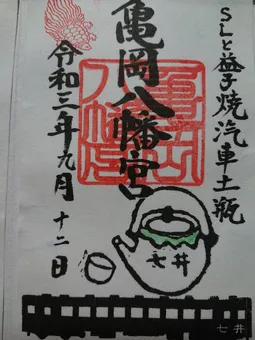 SLと益子焼汽車土瓶
亀岡八幡宮
令和三年九月十二日
七井
七井